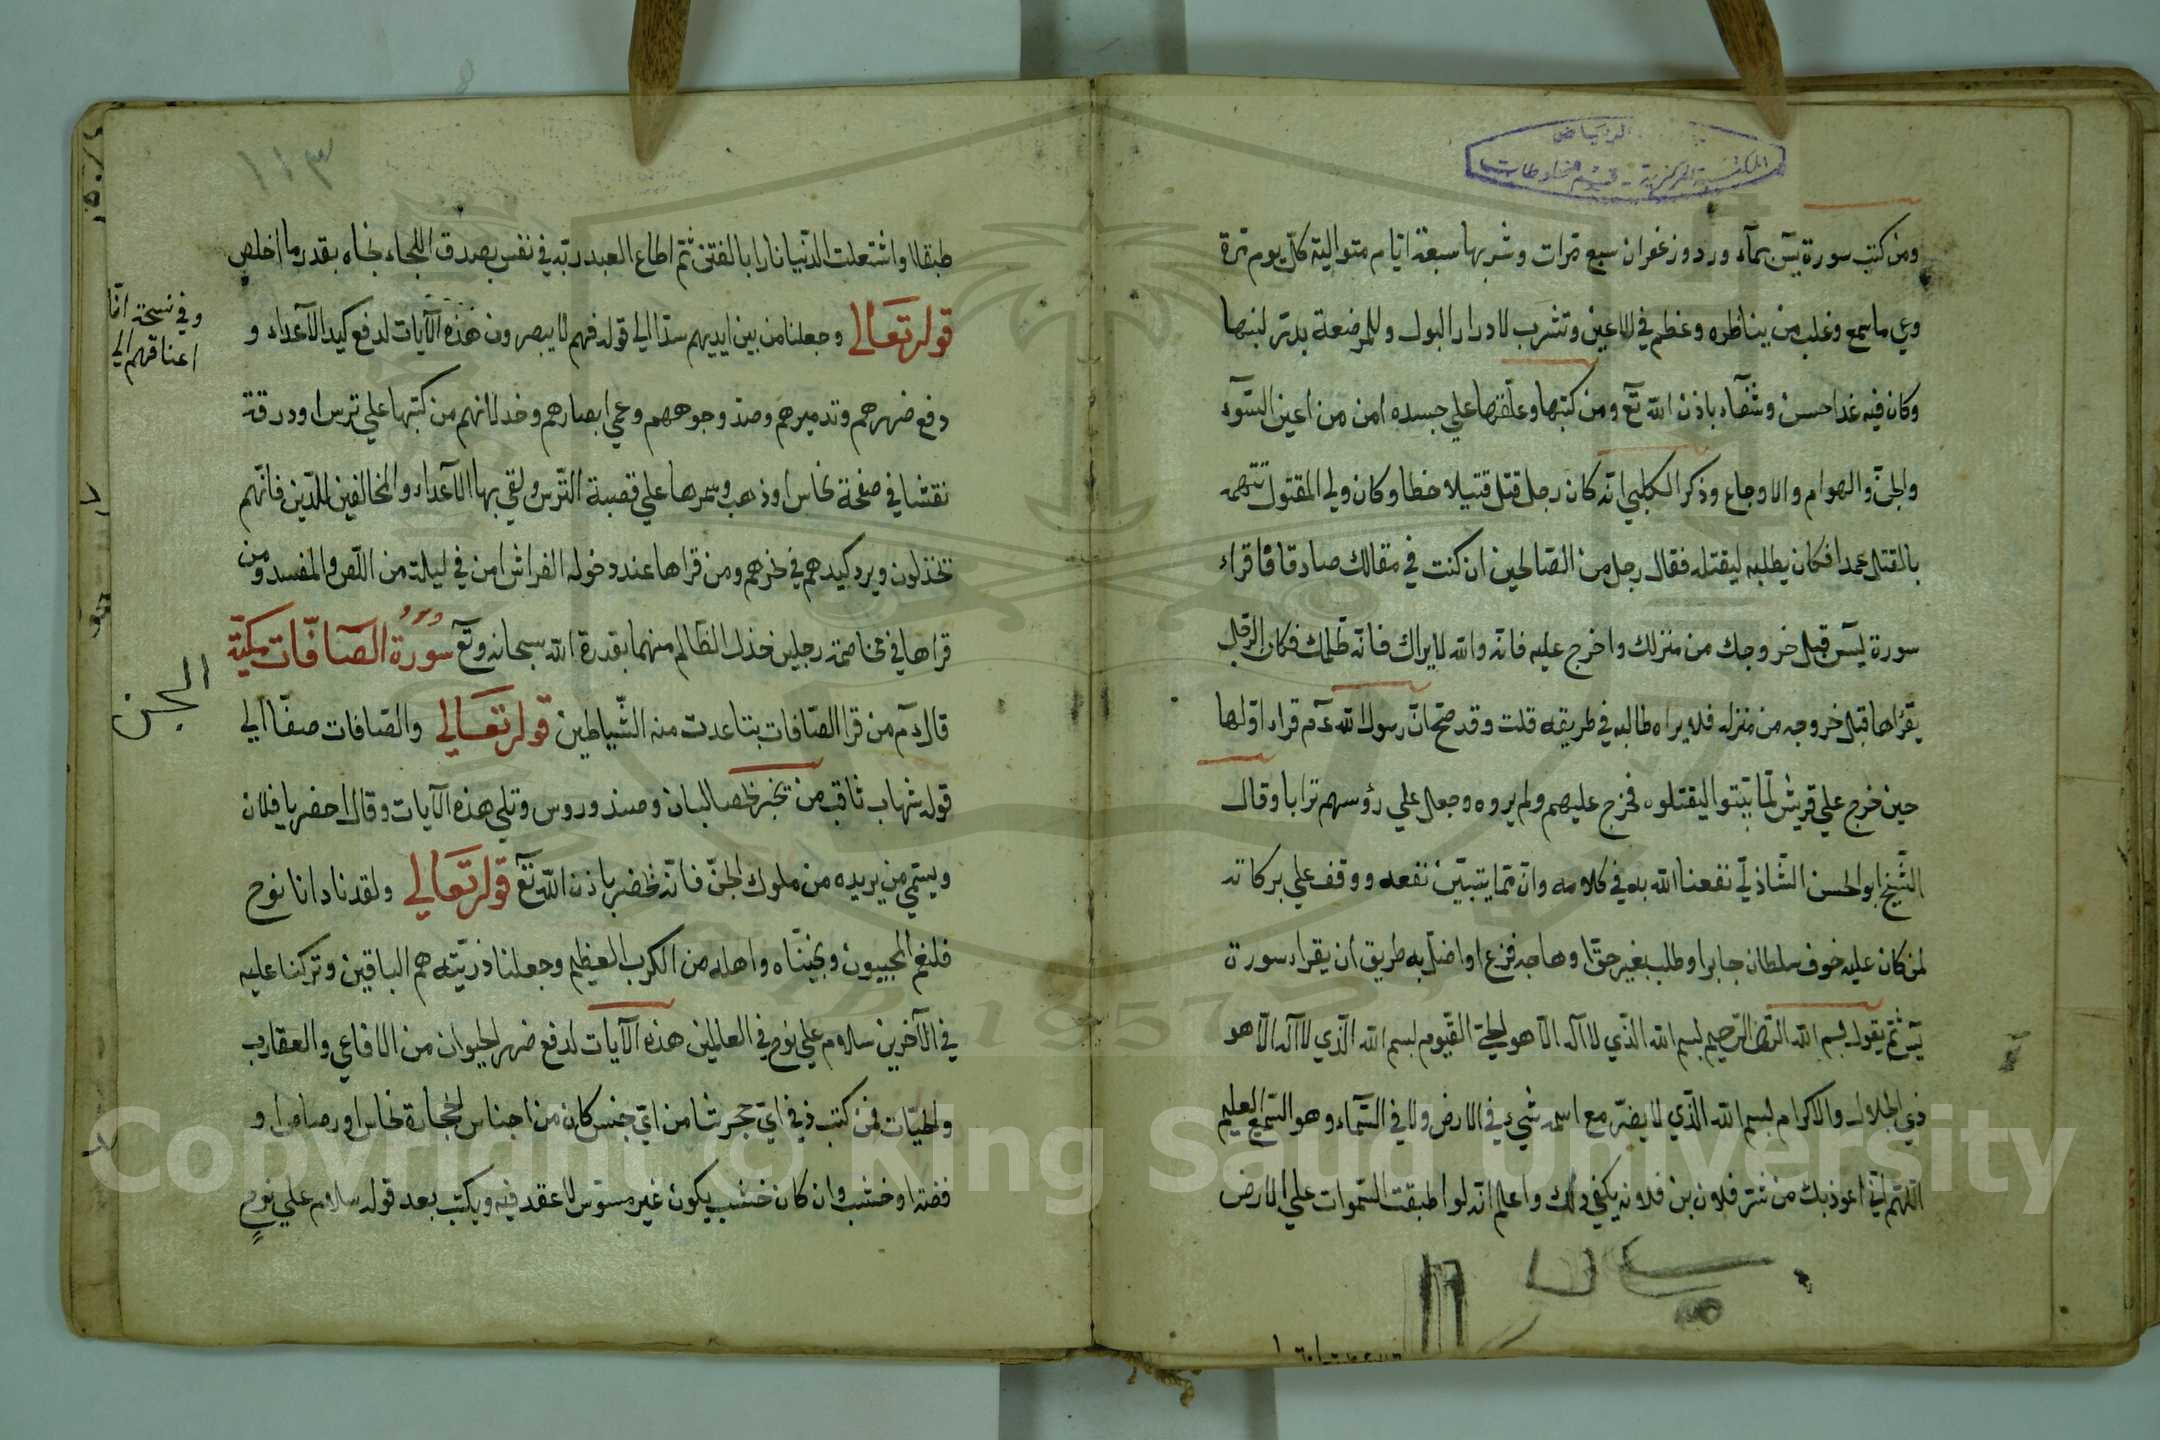 الرياض
المكتبة المركزية - قسم مخطوطات
ومن كتب سورة يسٓ بمآء ورد وزعفران سبع مرات وشربها سبعة ايام متوالية كل يوم مرة
وعي ما سمع وغلب من يناظره وعظم في الاعين وتشرب لادرار البول وللمرضعة يدر لبنها
وكان فيه غدا حسن وشفآء باذن الله تع ومن كتبها وعلقها علي جسده امن من اعين السوٓء
والجن والهوام والاوجاع وذكر الكلبي انه كان رجل قتل قتيلا خطا وكان ولي المقتول تتهمه
بالقتل عمدا فكان يطلبه ليقتله فقال رجل من الصالحين ان كنت في مقالك صادقا فاقراء
سورة يسٓ قبل خروجك من منزلك واخرج عليه فانه والله لا يراك فانه ظلمك فكان الرجل
يقراها قبل خروجه من منزله فلا يراه طالبه في طريقه قلت وقد صح ان رسول الله عٓم قراء اولها
حين خرج علي قريش لما بيتوا ليقتلوه فخرج عليهم ولم يروه وجعل علي رؤسهم ترابا وقال
الشيخ ابو الحسن الشاذلي نفعنا الله به في كلامه وان مما يتبين نفعه ووقف علي بركاته
لمن كان عليه خوف سلطان جابرا وطلب بغير حق او هاجه فزع او اضل به طريق ان يقراء سورة
يسٓ ثم يقول بسم الله الرحمن الرحيم بسم الله الذي لا اله الا هو الحي القيوم بسم الله الذي لا اله الا هو
ذي الجلال والاكرام بسم الله الذي لا يضر مع اسمه شيء في الارض ولا في السمآء وهو السميع العليم
اللهم اني اعوذ بك من شر فلان بن فلانه يكفي ذلك واعلم انه لو اطبقت السموات علي الارض
١١٣
طبقالا واشتعلت الدنيا نارا بالفتن ثم اطاع العبد ربه في نفس بصدق اللجاء نجاه بقدر ما اخلص
قوله تعالي وجعلنا من بين ايديهم سدا الي قوله فهم لا يبصرون هذه الآيات لدفع كيد الاعداء و
دفع ضررهم وتدميرهم وصد وجوههم وعمي ابصارهم وخدلانهم من كتبها علي ترس او درقة
نقشا في صفحة نحاس او ذهب وسمرها علي قصبة الترس ولقي بها الاعداء والمخالفين للدين فانهم
تخذلون ويرد كيدهم في نحرهم ومن قراها عند دخوله الفراش امن في ليلته من اللص والمفسد ومن
قراها في مخاصمة رجلين خذل الظالم منهما بقدرة الله سبحانه وتعٓ سورة الصآفات مكية
قال عٓم من قرا الصافات تباعدت منه الشياطين قوله تعالي والصافات صفا الي
قوله شهاب ثاقب من تبخر بحصا لبان وسندروس وتلي هذه الآيات وقال احضر يا فلان
ويسمي من يريده من ملوك الجن فانه تحضر باذن الله تعٓ قوله تعالي ولقد نادانا نوح
فلنعم المجيبون ونجيناه واهله من الكرب العظيم وجعلنا ذريته هم الباقين وتركنا عليه
في الآخرين سلام علي نوح في العالمين هذه الآيات لدفع ضرر الحيوان من الافاعي والعقارب
والحيات فمن كتب ذي في اي حجر شا من اي جنس كان من اجناس الحجارة نحاس او رصاص او
فضة او خشب وان كان خشب يكون غير مسوس لا عقد فيه ويكتب بعد قوله سلام علي نوح
وفي نسخة انا
اعناقهم الي
الجن
Copyright © King Saud University
1957